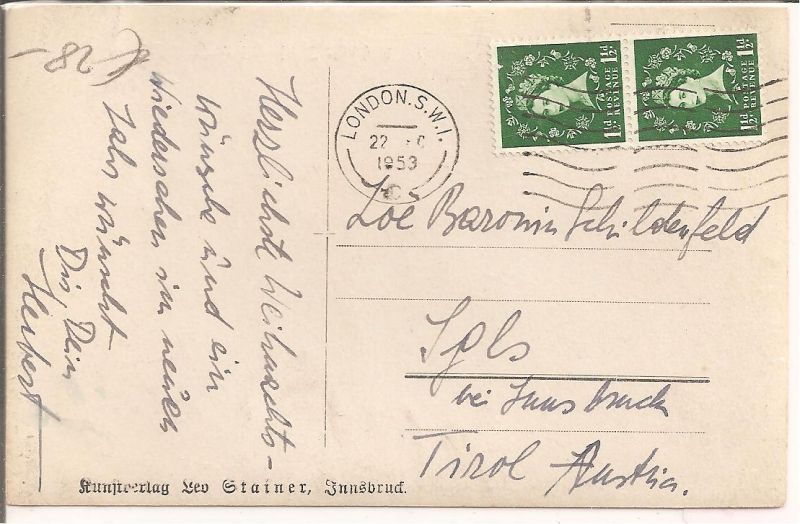 Herzlichste Weihnachts-
wünsche und ein
Wiedersehen im neuen
Jahr wünscht
Dir, Dein
Herbert
1½d POSTAGE REVENUE 1½d
1½d POSTAGE REVENUE 1½d
LONDON. S.W.1.
22
1953
C
Loe Baronin Schildenfeld
Igls
bei Innsbruck
Tirol Austria.
Kunstverlag Leo Stainer, Innsbruck.